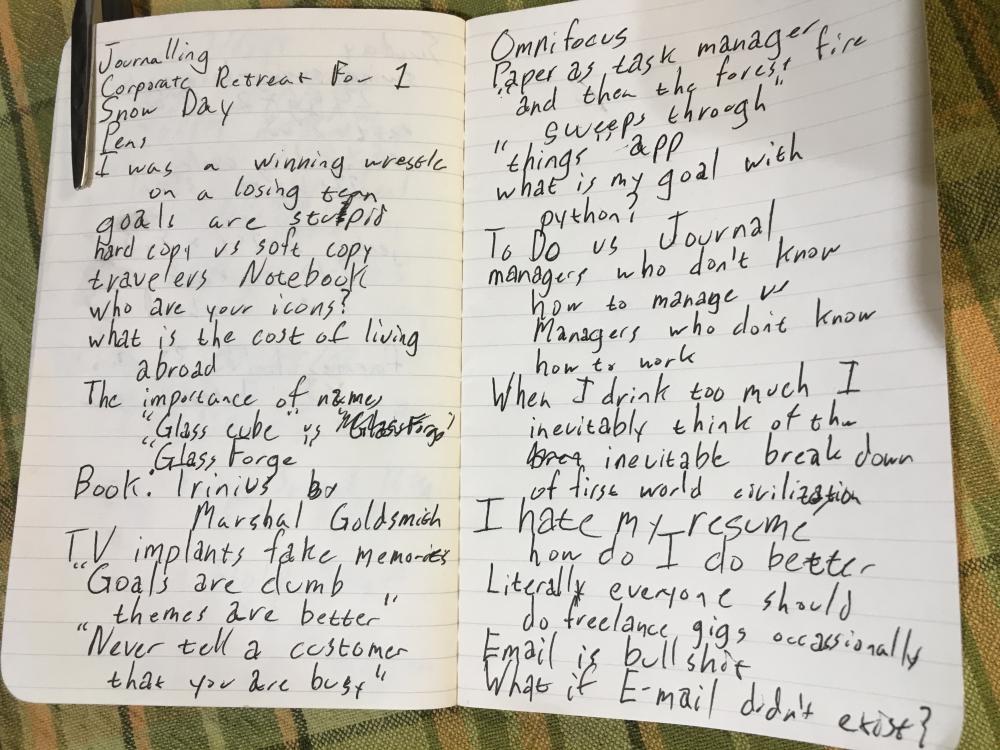 Journalling
Corporate Retreat For 1
Snow Day
Pens
I was a winning wrestle
on a losing team
goals are stupid
hard copy vs soft copy
travelers Notebook
who are your icons?
what is the cost of living
abroad
The importance of names
"Glass cube" vs "Glass Forge"
"Glass Forge
Book. Trinius by
Marshal Goldsmith
T.V implants fake memories
"Goals are dumb
themes are better"
"Never tell a customer
that you are busy"
Omnifocus
Paper as task manager
"and then the forest fire
sweeps through"
"things" app
what is my goal with
python?
To Do vs Journal
managers who don't know
how to manage vs
Managers who don't know
how to work
When I drink too much I
inevitably think of the
inevitable break down
of first world civilization
I hate my resume
how do I do better
Literally everyone should
do freelance gigs occassionally
Email is bullshit
What if E-mail didn't exist?